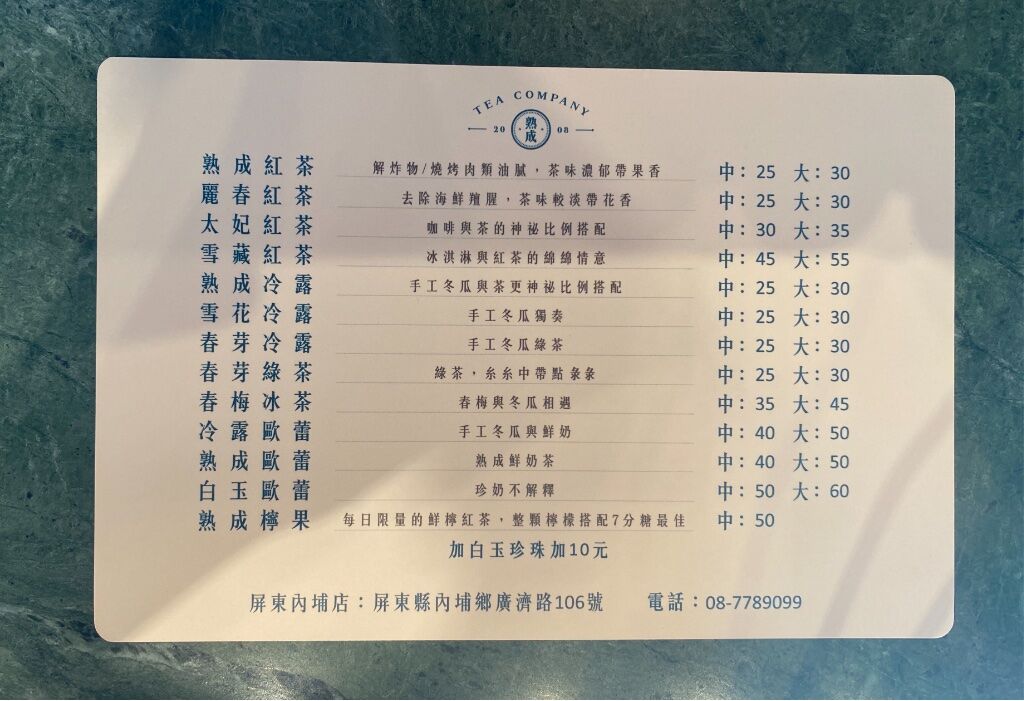 TEA COMPANY
20 熟成 08
熟成紅茶 解炸物/燒烤肉類油膩，茶味濃郁帶果香 中：25 大：30
麗春紅茶 去除海鮮羶腥，茶味較淡帶花香 中：25 大：30
太妃紅茶 咖啡與茶的神祕比例搭配 中：30 大：35
雪藏紅茶 冰淇淋與紅茶的綿綿情意 中：45 大：55
熟成冷露 手工冬瓜與茶更神祕比例搭配 中：25 大：30
雪花冷露 手工冬瓜獨奏 中：25 大：30
春芽冷露 手工冬瓜綠茶 中：25 大：30
春芽綠茶 綠茶，糸糸中帶點彔彔 中：25 大：30
春梅冰茶 春梅與冬瓜相遇 中：35 大：45
冷露歐蕾 手工冬瓜與鮮奶 中：40 大：50
熟成歐蕾 熟成鮮奶茶 中：40 大：50
白玉歐蕾 珍奶不解釋 中：50 大：60
熟成檸果 每日限量的鮮檸紅茶，整顆檸檬搭配7分糖最佳 中：50
加白玉珍珠加10元
屏東內埔店：屏東縣內埔鄉廣濟路106號 電話：08-7789099